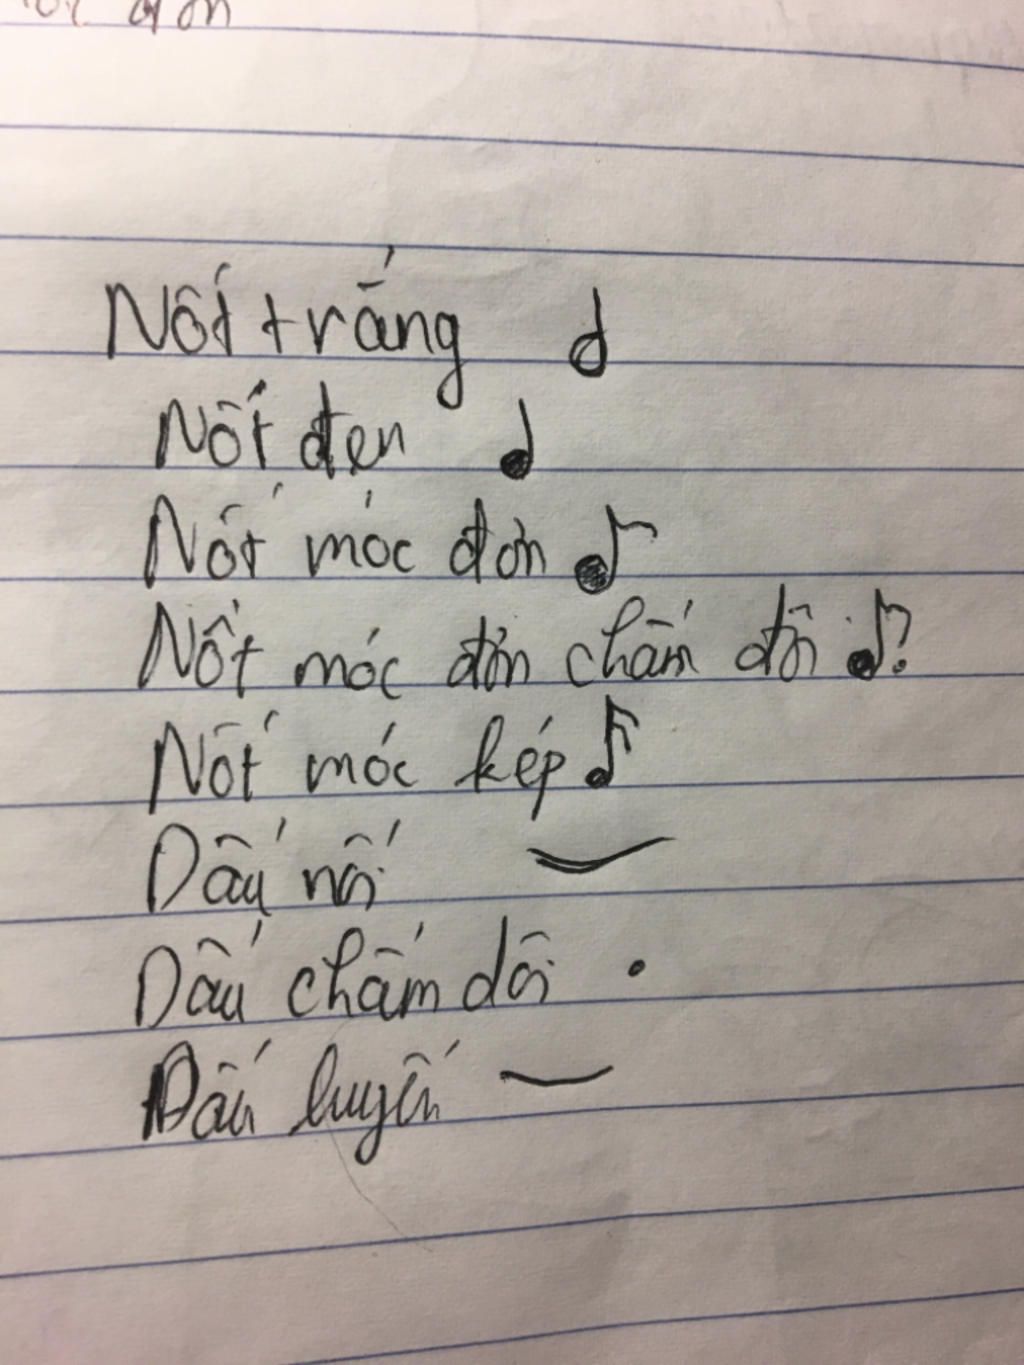 Nốt trắng
Nốt đen
Nốt móc đơn
Nốt móc đơn chấm dôi
Nốt móc kép
Dấu nối
Dấu chấm dôi
Dấu luyến